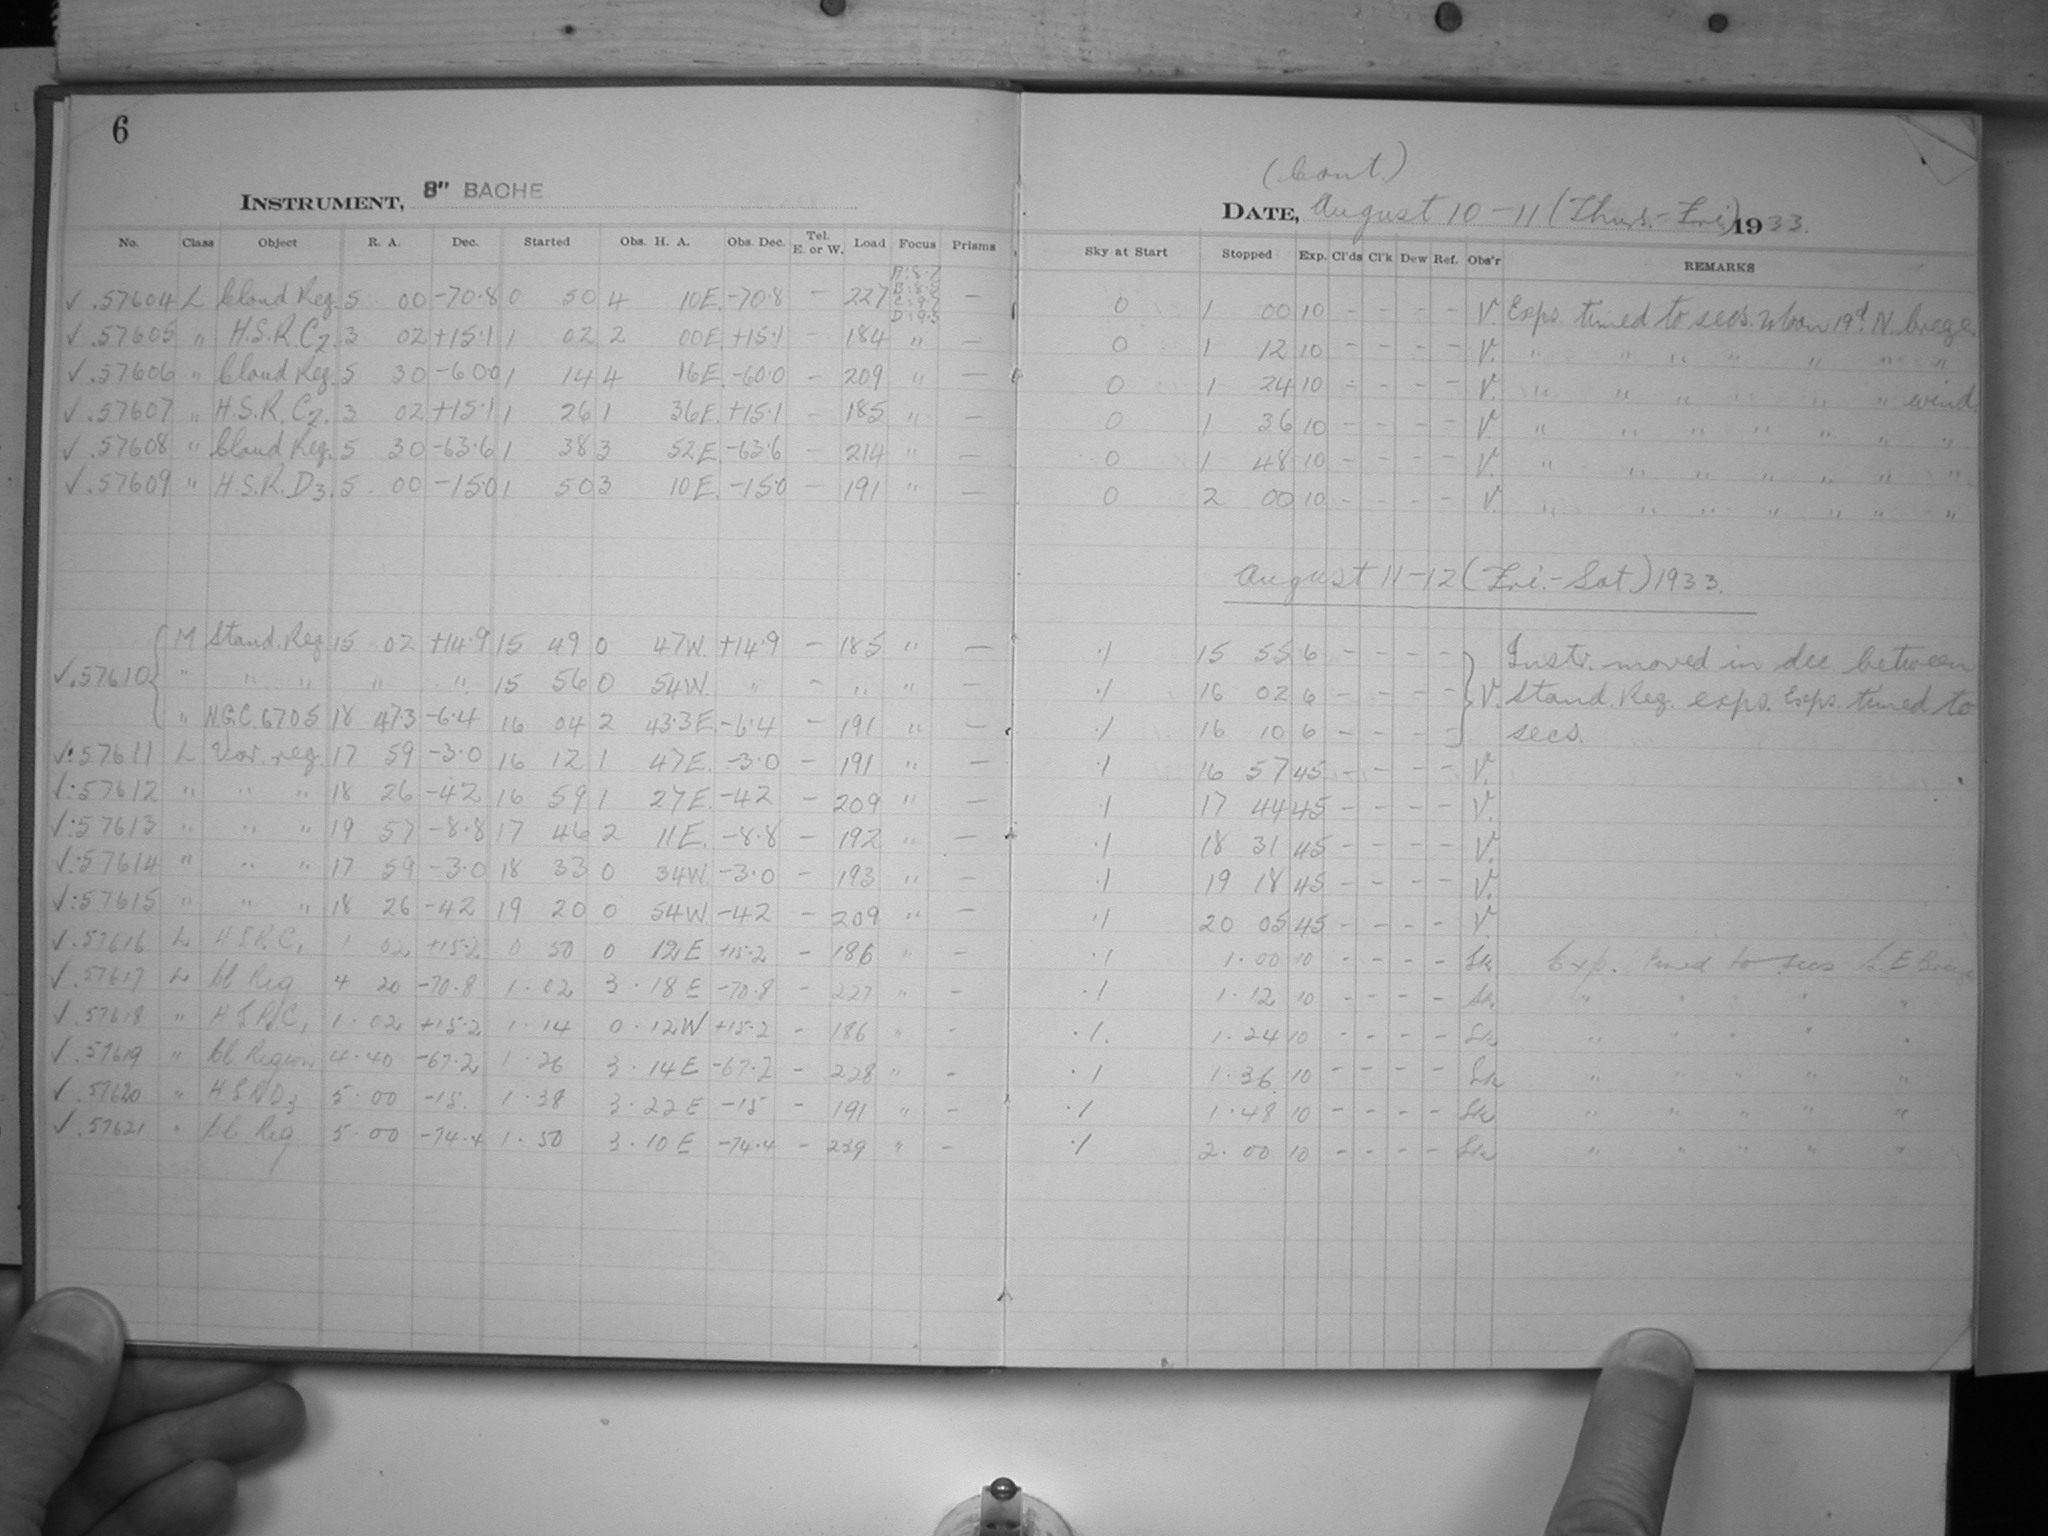 6
(Cont.)
INSTRUMENT, 8" BACHE
DATE, August 10-11 (Thurs.-Fri.) 1933.
No. Class Object R. A. Dec. Started Obs. H. A. Obs. Dec. Tel. E. or W. Load Focus Prisms Sky at Start Stopped Exp. Cl'ds Cl'k Dew Ref. Obs'r REMARKS
A:8.7
B:8.5
C:9.7
D:9.5
√ .57604 L Cloud Reg. 5 00 -70.8 0 50 4 10E. -70.8 - 227 - 0 1 00 10 - - - - V. Exps. timed to secs. Moon 19d. N. breeze.
√ .57605 " H.S.R.C2. 3 02 +15.1 1 02 2 00E. +15.1 - 184 " - 0 1 12 10 - - - - V. " " " " " " "
√ .57606 " Cloud Reg. 5 30 -60.0 1 14 4 16E. -60.0 - 209 " - 0 1 24 10 - - - - V. " " " " " " wind.
√ .57607 " H.S.R.C2. 3 02 +15.1 1 26 1 36E. +15.1 - 185 " - 0 1 36 10 - - - - V. " " " " " " "
√ .57608 " Cloud Reg. 5 30 -63.6 1 38 3 52E. -63.6 - 214 " - 0 1 48 10 - - - - V. " " " " " " "
√ .57609 " H.S.R.D3. 5 00 -15.0 1 50 3 10E. -15.0 - 191 " - 0 2 00 10 - - - - V. " " " " " " "
August 11-12 (Fri.-Sat.) 1933.
M Stand. Reg. 15 02 +14.9 15 49 0 47W. +14.9 - 185 " - .1 15 55 6 - - - - Instr. moved in dec. between
√.57610 " " " " " 15 56 0 54W. " - " " - .1 16 02 6 - - - - V. Stand. Reg. exps. Exps. timed to
" N.G.C. 6705 18 47.3 -6.4 16 04 2 43.3E. -6.4 - 191 " - .1 16 10 6 - - - - secs.
√:57611 L Var. reg. 17 59 -3.0 16 12 1 47E. -3.0 - 191 " - .1 16 57 45 - - - - V.
√:57612 " " " 18 26 -42 16 59 1 27E. -42 - 209 " - .1 17 44 45 - - - - V.
√:57613 " " " 19 57 -8.8 17 46 2 11E. -8.8 - 192 " - .1 18 31 45 - - - - V.
√:57614 " " " 17 59 -3.0 18 33 0 34W. -3.0 - 193 " - .1 19 18 45 - - - - V.
√:57615 " " " 18 26 -42 19 20 0 54W. -42 - 209 " - .1 20 05 45 - - - - V.
√ .57616 L H S R C1 1 02 +15.2 0 50 0 12E +15.2 - 186 " - .1 1.00 10 - - - - Exp. timed to secs S.E Breeze
√ .57617 L Cl Reg 4 20 -70.8 1.02 3.18E -70.8 - 227 " - .1 1.12 10 - - - - " " " " "
√ .57618 " H S R C1 1.02 +15.2 1.14 0.12W +15.2 - 186 " - .1. 1.24 10 - - - - " " " " "
√ .57619 " Cl Region 4.40 -67.2 1.26 3.14E -67.2 - 228 " - .1 1.36 10 - - - - " " " " "
√ .57620 " H S R D3 5.00 -15. 1.38 3.22E -15 - 191 " - .1 1.48 10 - - - - " " " " "
√ .57621 " Cl Reg 5.00 -74.4 1.50 3.10E -74.4 - 239 " - .1 2.00 10 - - - - " " " " "